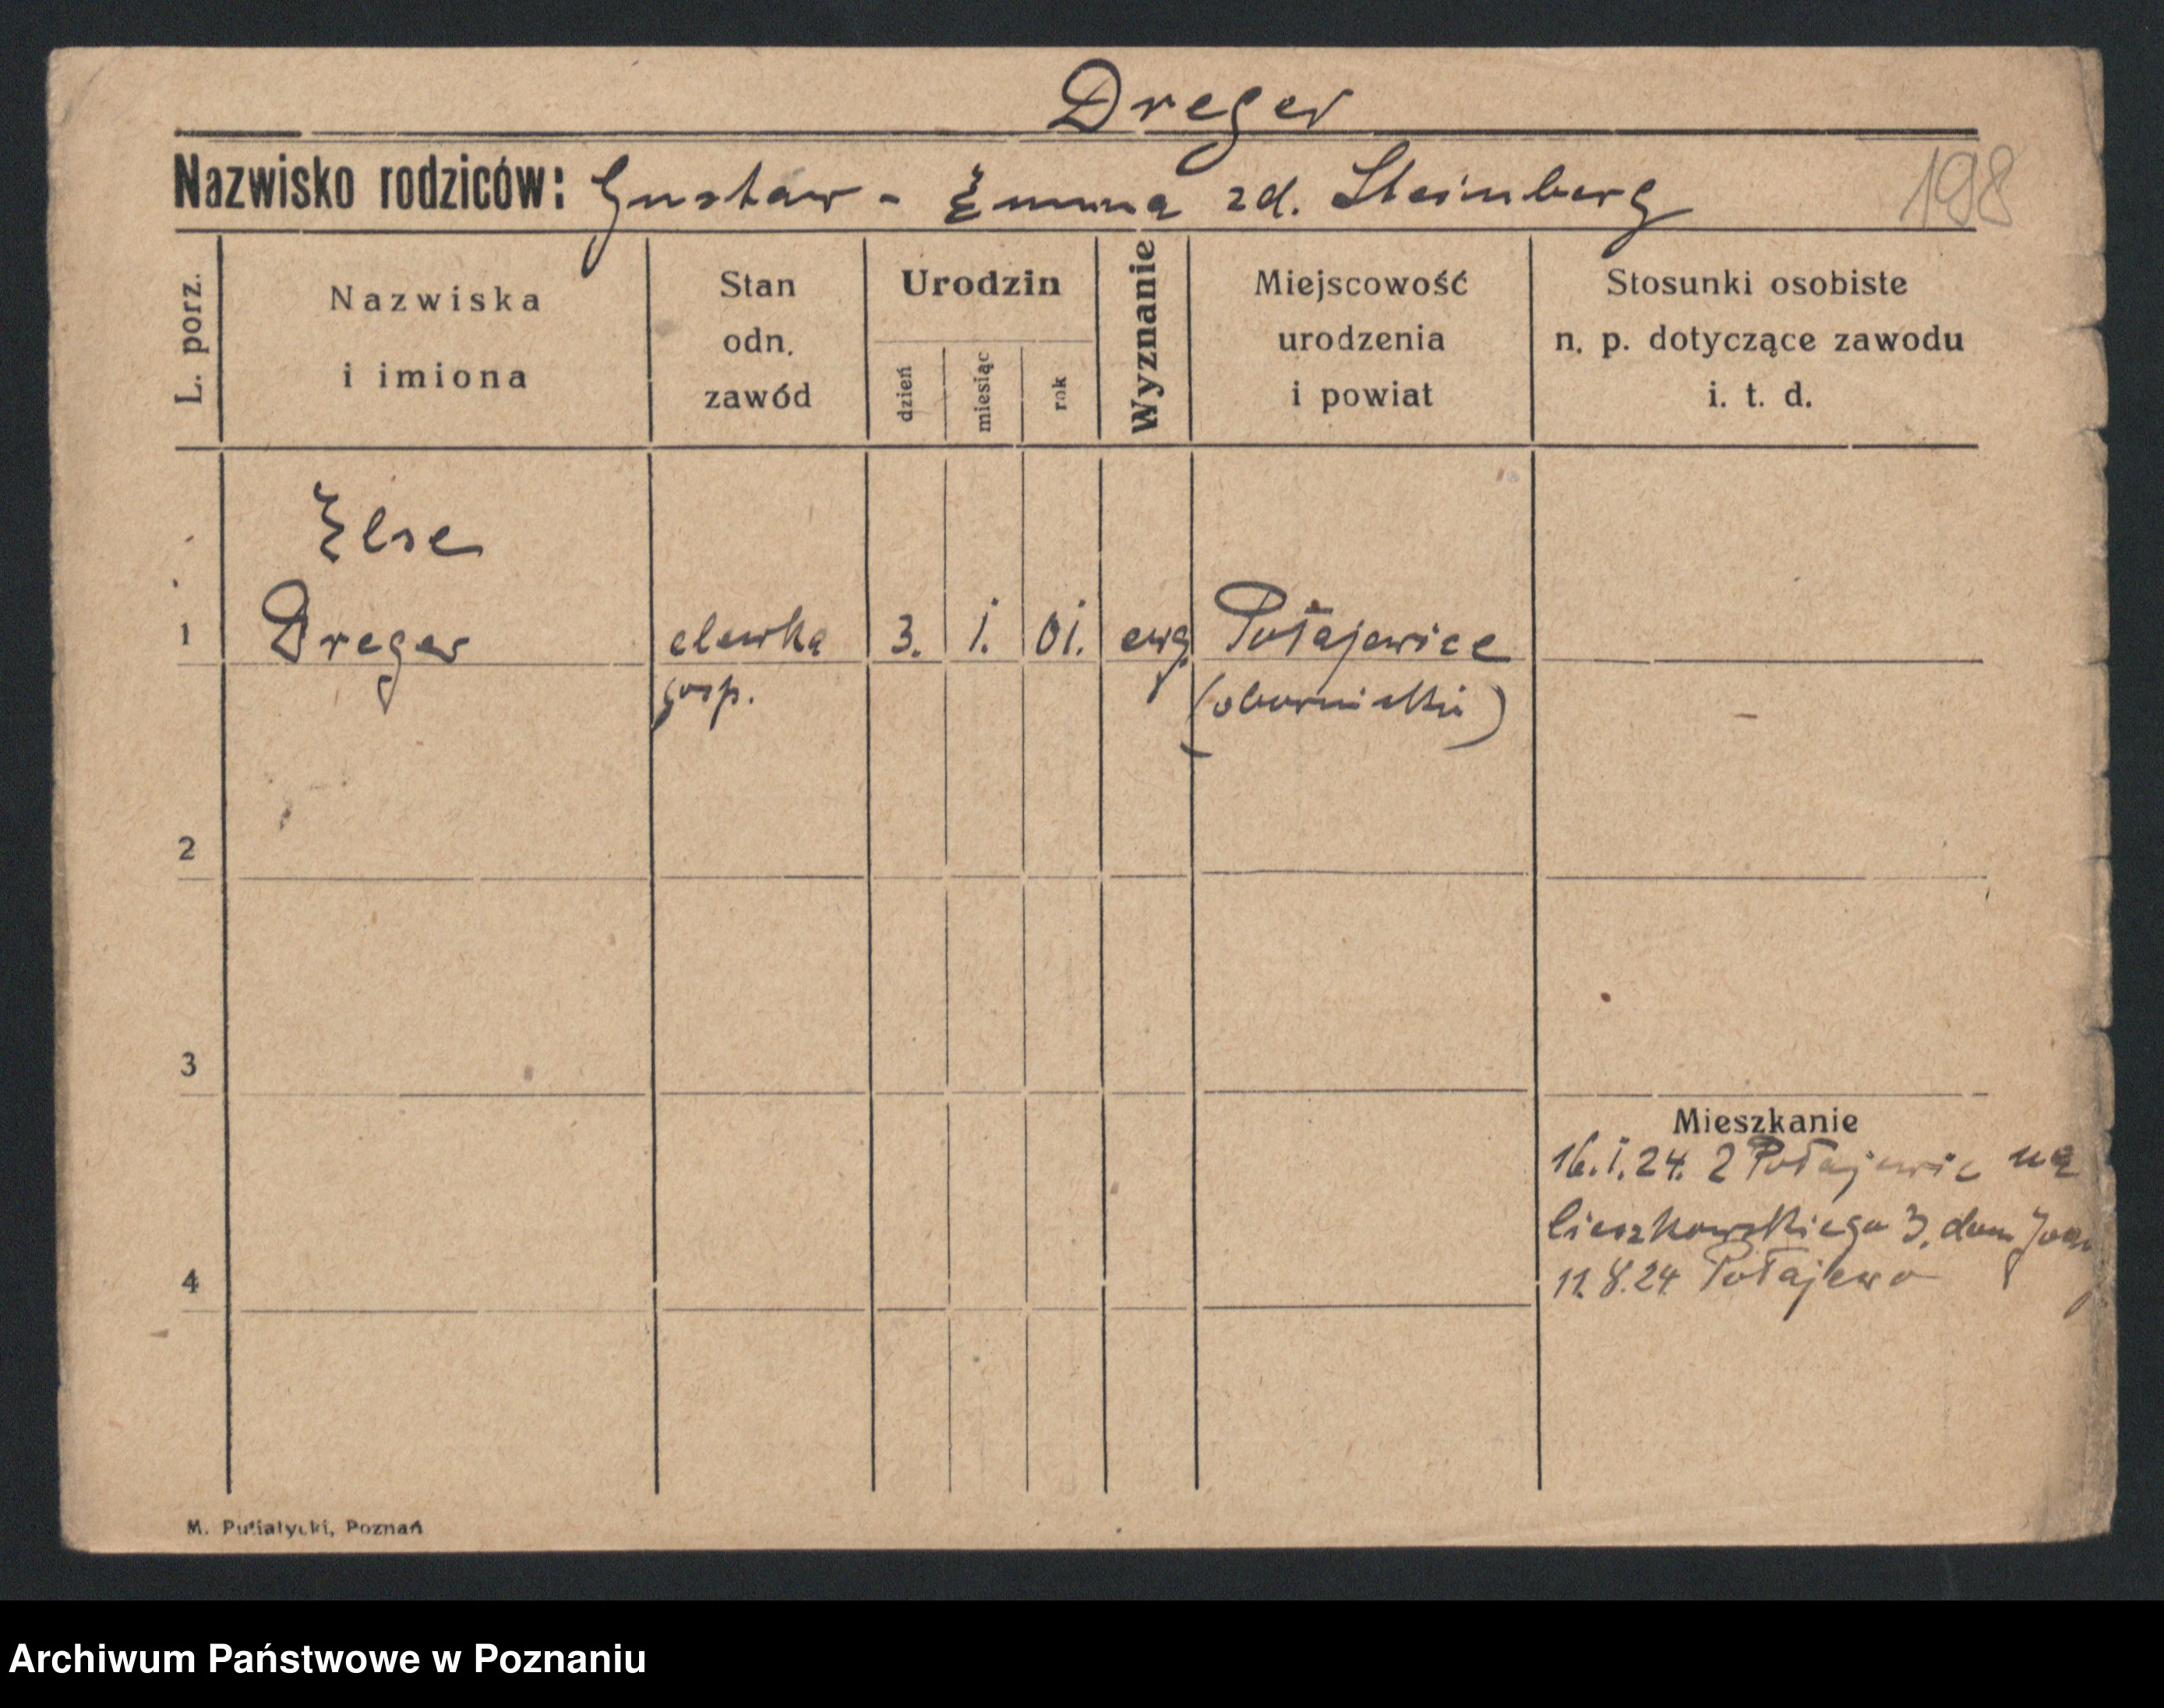 Dreger
Nazwisko rodziców: Gustaw - Emma zd. Steinberg
198
L. porz.
Nazwiska
i imiona
Stan
odn.
zawód
Urodzin
dzień
miesiąc
rok
Wyznanie
Miejscowość
urodzenia
i powiat
Stosunki osobiste
n. p. dotyczące zawodu
i. t. d.
Else
1 Dreger elewka 3. i. 01. ewg. Połajewice
gosp. (obornicki)
2
3
Mieszkanie
16.i.24. z Połajewic na
Cieszkowskiego 3. dom
4 11.8.24 Połajewo
M. Putiatycki, Poznań
Archiwum Państwowe w Poznaniu